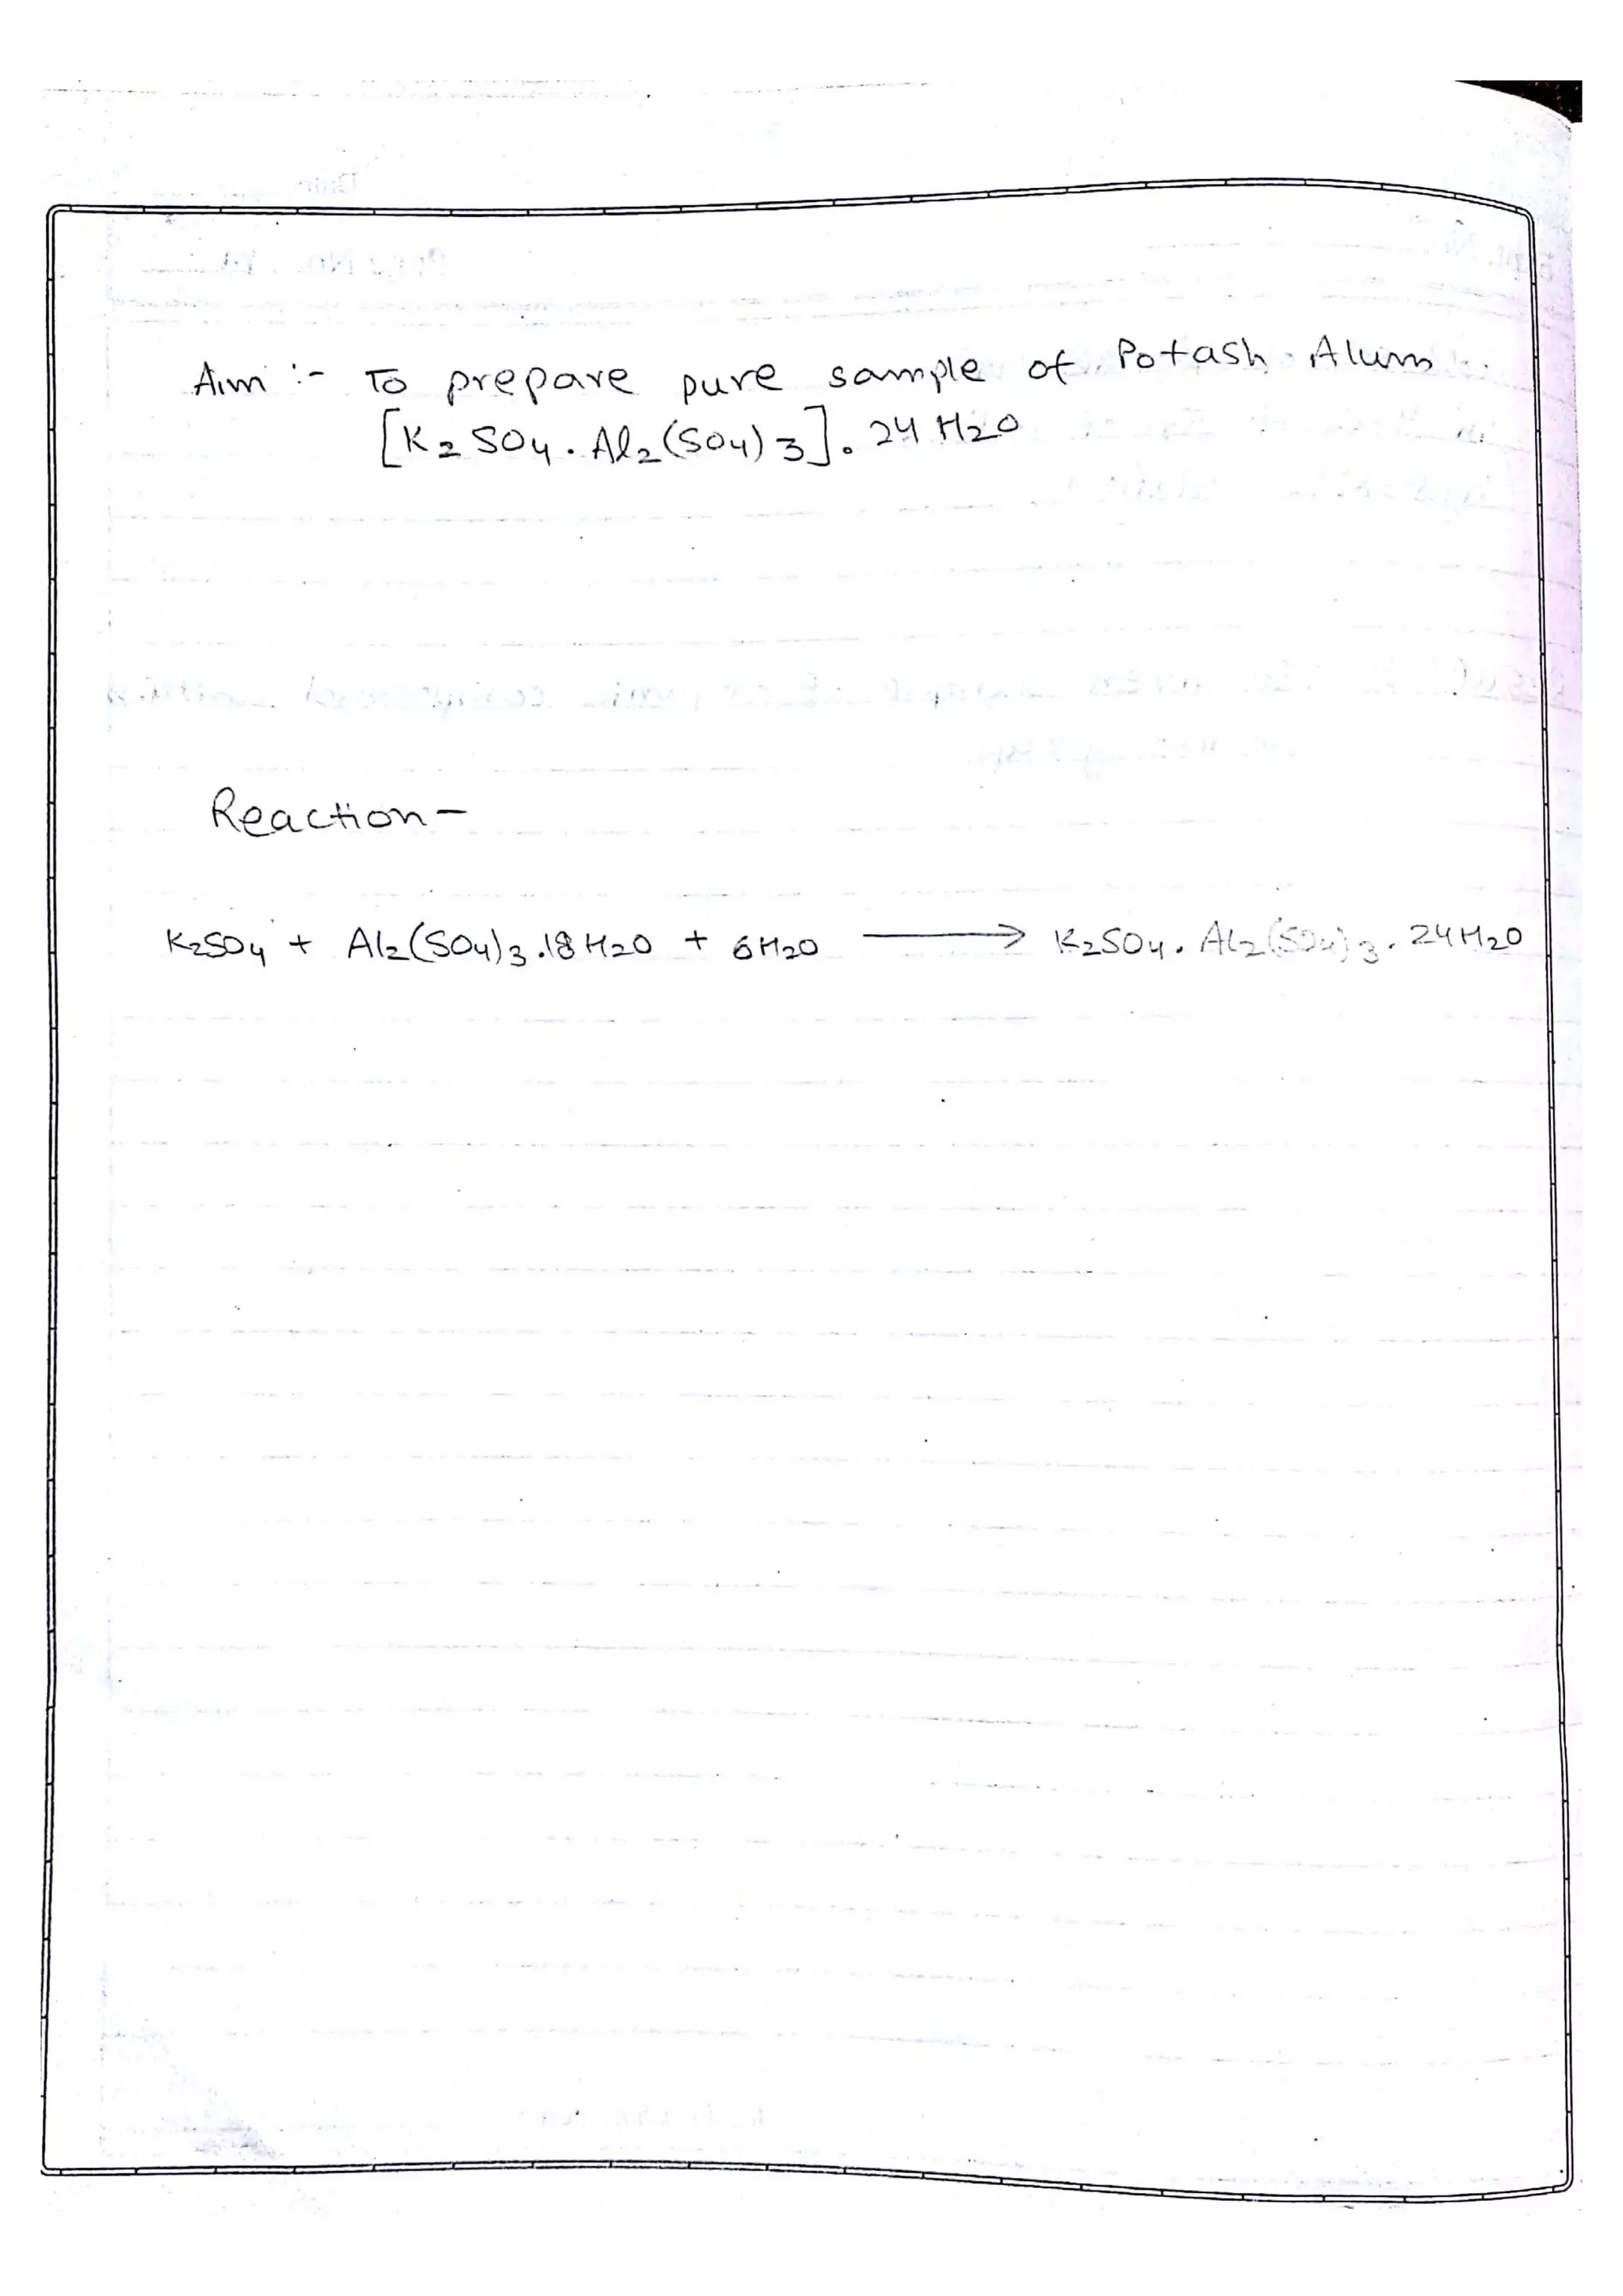 Aim :- To prepare pure sample of Potash Alum
[K2SO4.Al2(SO4)3].24H2O
Reaction-
K2SO4 + Al2(SO4)3.18H2O + 6H2O ⟶ K2SO4.Al2(SO4)3.24H2O